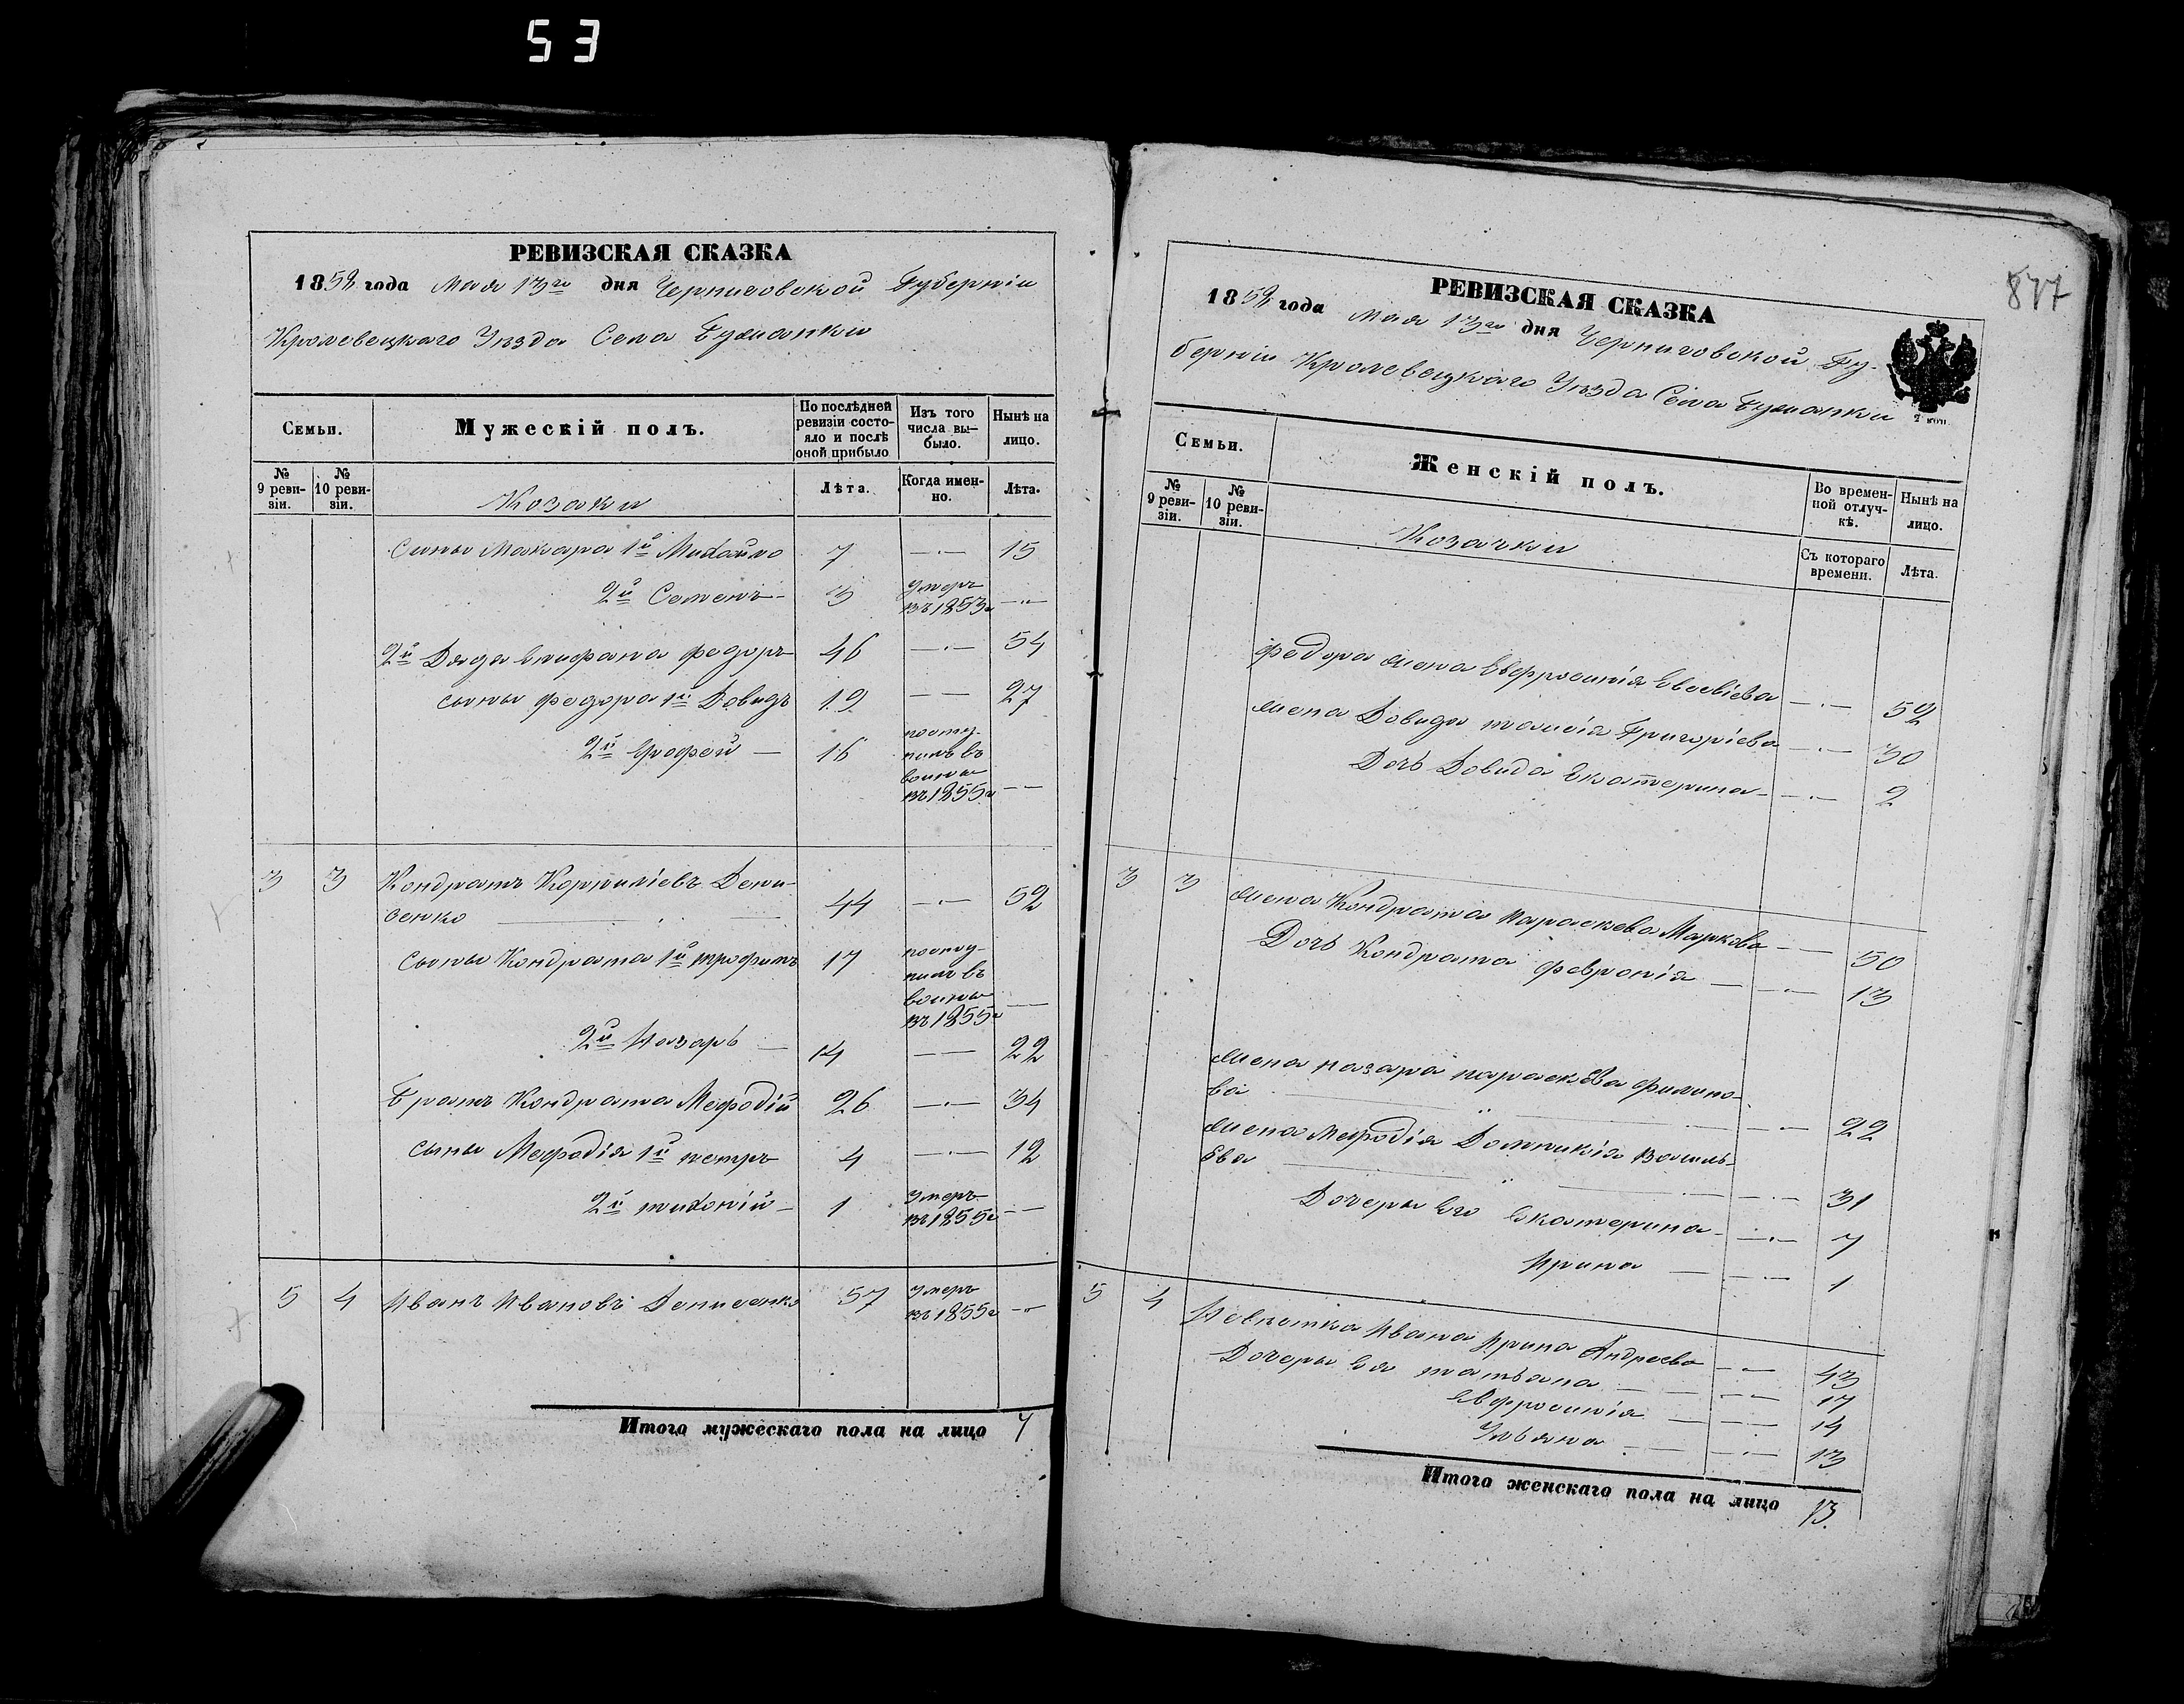 53
РЕВИЗСКАЯ СКАЗКА
1858 года Мая 13го дня Черниговской Губерніи
Кролевецкаго Уѣзда Села Бужанки
Семьи.
Мужескій полъ.
По послѣдней ревизіи состояло и послѣ оной прибыло
Изъ того числа вы-было.
Нынѣ на лицо.
№ 9 реви-зіи.
№ 10 реви-зіи.
Козаки
Лѣта.
Когда имен-но.
Лѣта.
Сыны Макара 1й Михайло 7 — 15
2й Семенъ — 3 умеръ въ 1853г —
2й Дядя Епифана Федоръ 46 — 54
сыны Федора 1й Довидъ 19 — 27
2й Ерофей — 16 поступилъ въ воины въ 1855г —
3 3 Кондратъ Корнилiевъ Дени-
сенко — 44 — 52
Сыны Кондрата 1й Трофимъ 17 поступилъ въ воины въ 1855г —
2й Назарь — 14 — 22
Братъ Кондрата Мефодій 26 — 34
сыны Мефодія 1й Петръ 4 — 12
2й Тихоній — 1 умеръ въ 1855г —
5 4 Иванъ Ивановъ Денисенко 57 умеръ въ 1855г —
Итого мужескаго пола на лицо 7
877
РЕВИЗСКАЯ СКАЗКА
1858 года Мая 13го дня Черниговской Гу-
берніи Кролевецкаго Уѣзда Села Бужанки
Семьи.
Женскій полъ.
Во времен-ной отлуч-кѣ.
Нынѣ на лицо.
№ 9 реви-зіи.
№ 10 реви-зіи.
Козачки
Съ котораго времени.
Лѣта.
Федора жена Евфросинія Евсевіева — 52
Жена Довида Таисія Григоріева — 30
Дочь Довида Екатерина — 2
3 3 Жена Кондрата Параскева Маркова — 50
Дочь Кондрата Февронія — 13
Жена Назара Параскева Филипо-
ва — 22
Жена Мефодія Домникія Василь-
ева — 31
Дочеры Его Екатерина — 7
Ирина — 1
5 4 Невѣстка Ивана Ирина Андреева — 43
Дочеры Ея Татьяна — 17
Евфросинія — 14
Ульяна — 13
Итого женскаго пола на лицо 13.